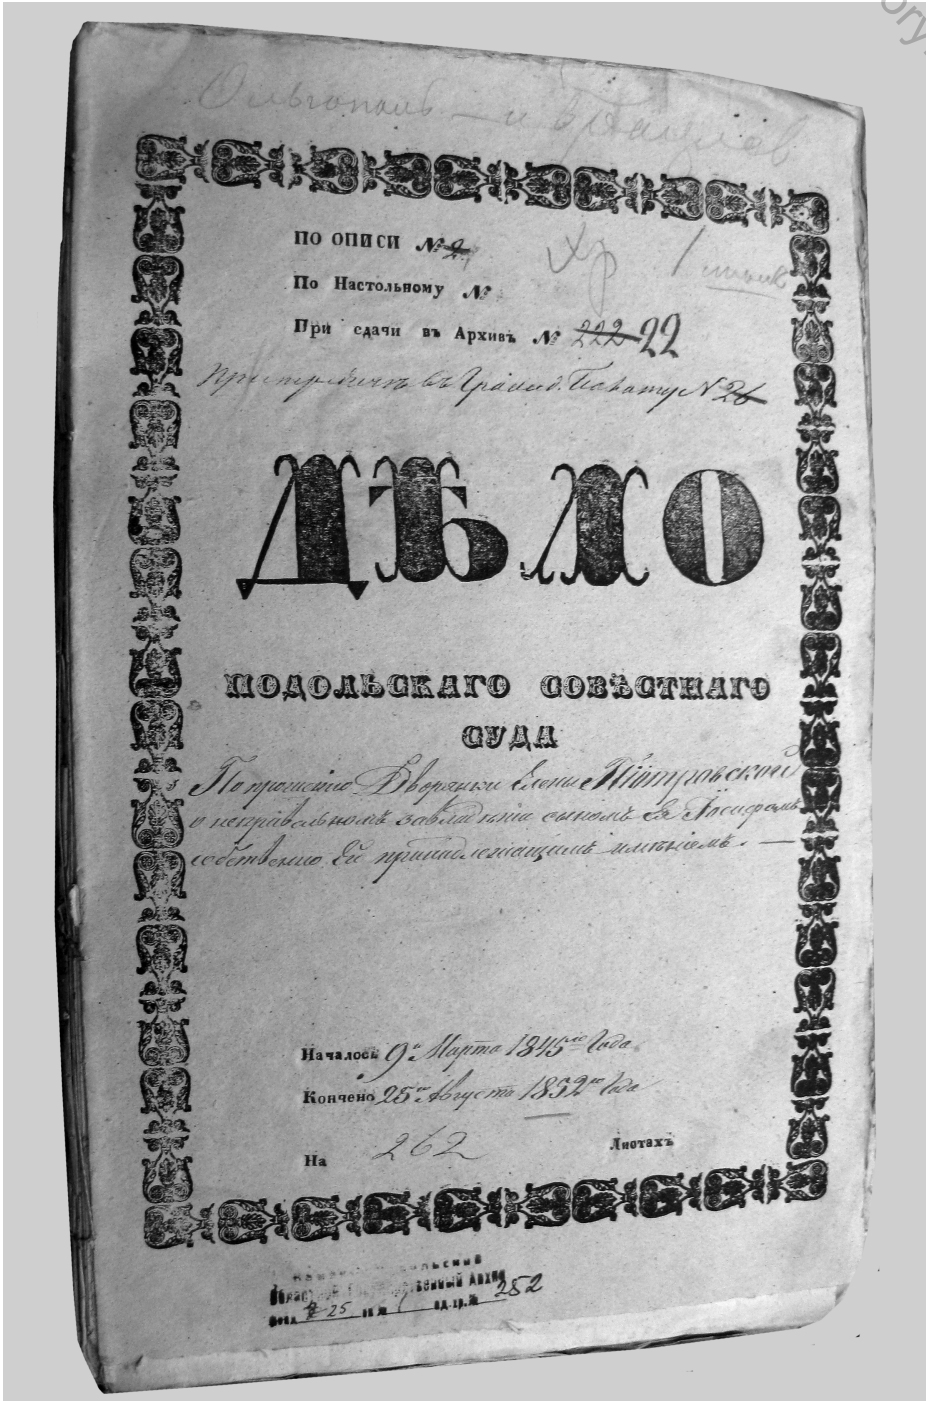 ory
Ольгополь – и Брацлав
ПО ОПИСИ № 2
Хр
По Настольному №
При сдачи въ Архивъ № 222 22
въ Повѣту N 26
ДѢЛО
ПОДОЛЬСКАГО СОВѢСТНАГО
СУДА
По прошенію Дворянки Елены Піотровской
о неправельномъ завладѣніи сыномъ Ея Іосифомъ
собственно Ей принадлежащимъ имѣніемъ. —
Началось 9го Марта 1845го Года
Кончено 25го Августа 1852го Года
На 262 Листахъ
Областной Государственный Архив
Фонд 225 оп № 1 ед.хр.№ 252